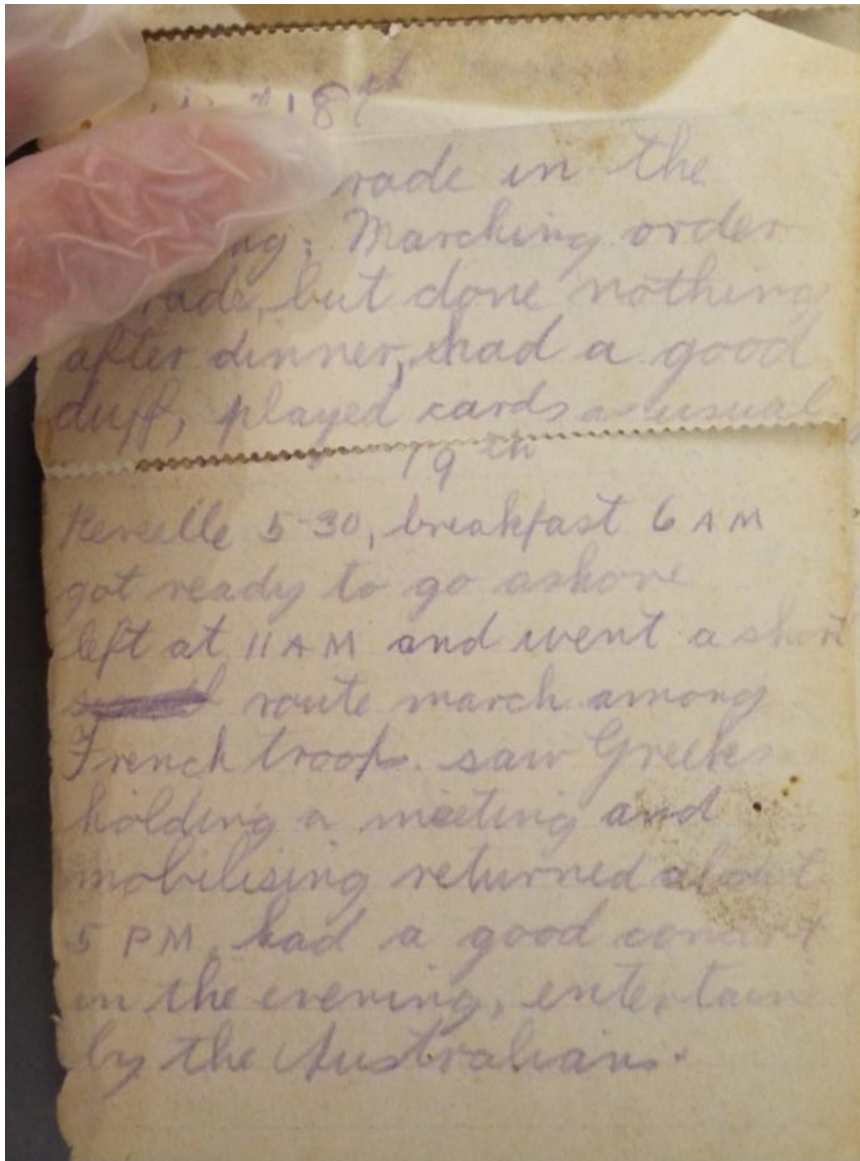 18th
rade in the
ng; Marching order
rade, but done nothing
after dinner, had a good
duff, played cards as usual
19th
Reveille 5-30, breakfast 6 AM
got ready to go ashore
left at 11 AM and went a short
route march among
French troops. saw Greeks
holding a meeting and
mobilising returned about
5 PM, had a good concert
in the evening, entertain
by the Australians.